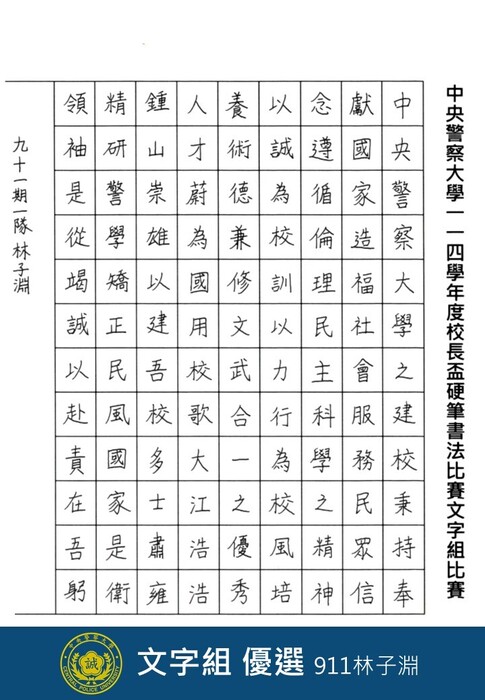 中央警察大學一一四學年度校長盃硬筆書法比賽文字組比賽
中央警察大學之建校秉持奉
獻國家造福社會服務民眾信
念遵循倫理民主科學之精神
以誠為校訓以力行為校風培
養術德兼修文武合一之優秀
人才蔚為國用校歌大江浩浩
鍾山崇雄以建吾校多士肅雍
精研警學矯正民風國家是衛
領袖是從竭誠以赴責在吾躬
九十一期一隊林子淵
中央警察大學
誠
CENTRAL POLICE UNIVERSITY
文字組 優選 911林子淵